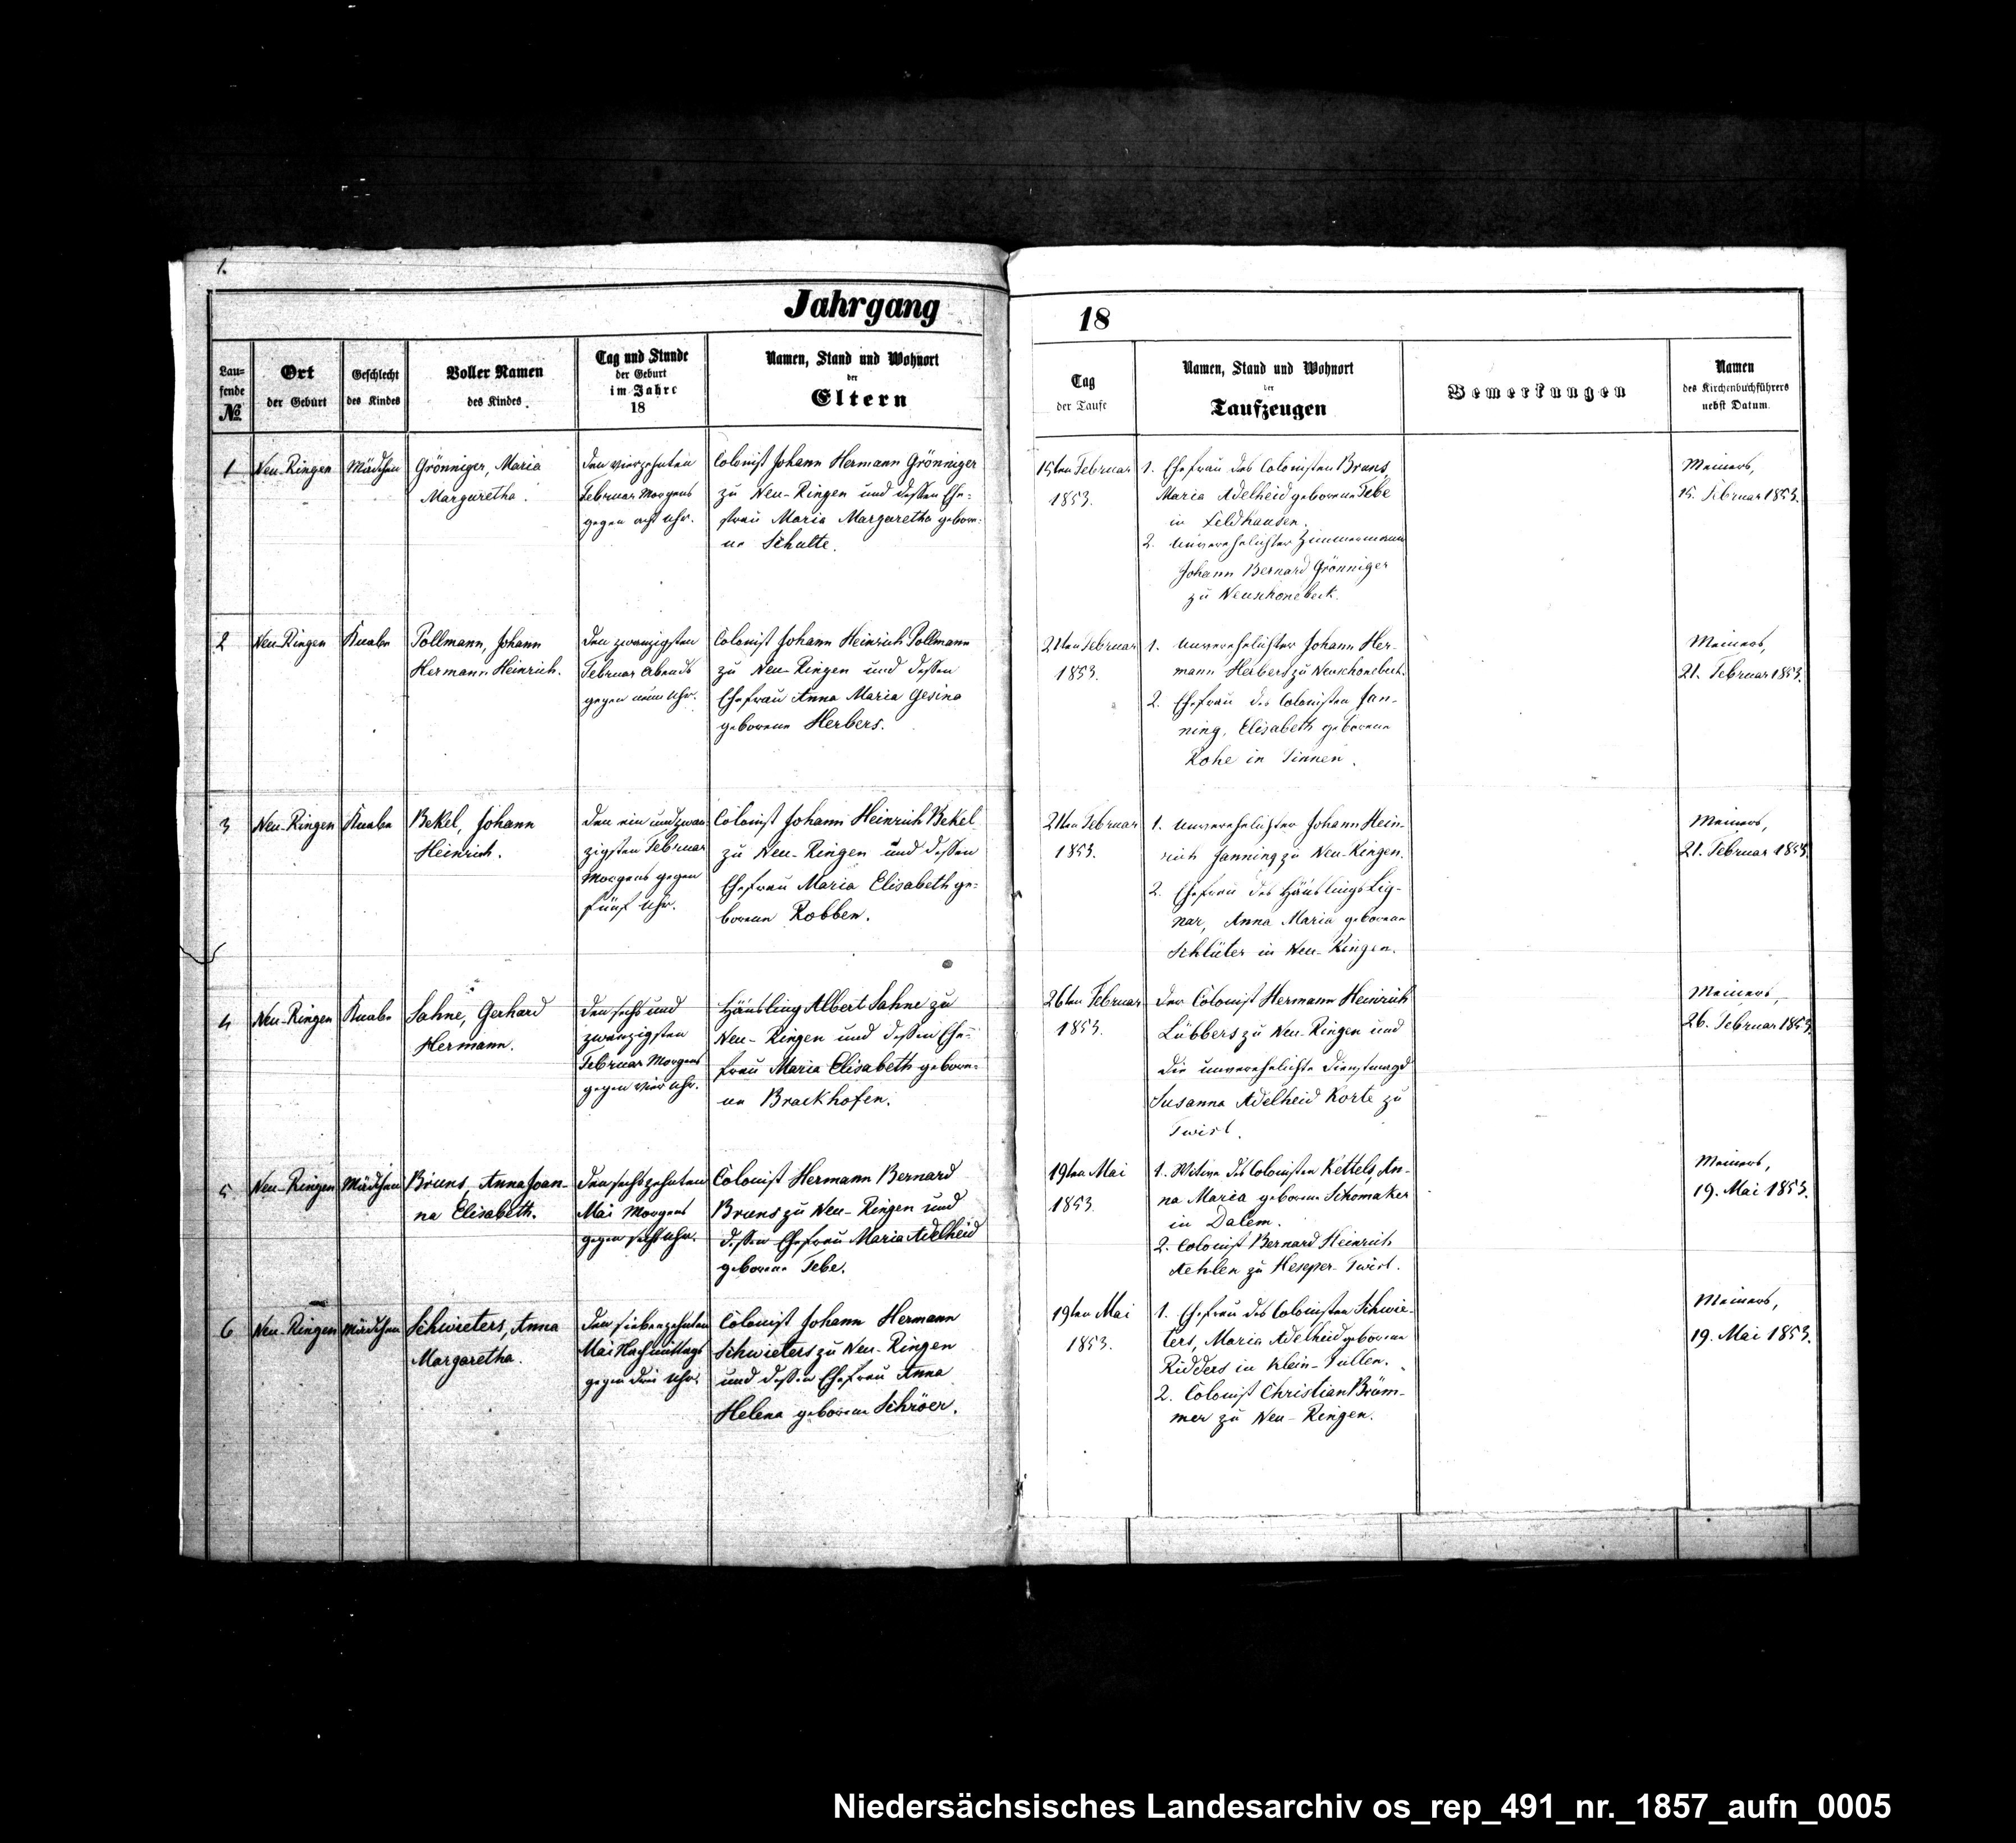 1.
Jahrgang
18
Lau=
fende
№
Ort
der Geburt
Geschlecht
des Kindes
Voller Namen
des Kindes.
Tag und Stunde
der Geburt
im Jahre
18
Namen, Stand und Wohnort
der
Eltern
Tag
der Taufe
Namen, Stand und Wohnort
der
Taufzeugen
Bemerkungen
Namen
des Kirchenbuchführers
nebst Datum.
1
Neu-Ringen
Mädchen
Grönniger, Maria
Margaretha.
den vierzehnten
Februar Morgens
gegen acht Uhr.
Colonist Johann Hermann Grönniger
zu Neu-Ringen und dessen Ehe-
frau Maria Margaretha gebore-
ne Schulte.
15ten Februar
1853.
1. Ehefrau des Colonisten Bruns
Maria Adelheid geborene Tebe
in Feldhausen.
2. Unverehelichter Zimmermann
Johann Bernard Grönniger
zu Neuschonebeck.
Meiners,
15. Februar 1853.
2
Neu-Ringen
Knabe
Pollmann, Johann
Hermann Heinrich.
den zwanzigsten
Februar Abends
gegen neun Uhr.
Colonist Johann Heinrich Pollmann
zu Neu-Ringen und dessen
Ehefrau Anna Maria Gesina
geborene Herbers.
21ten Februar
1853.
1. Unverehelichter Johann Her-
mann Herbers zu Neuschonebeck.
2. Ehefrau des Colonisten Jan-
ning, Elisabeth geborene
Kohe in Tinnen.
Meiners,
21. Februar 1853.
3
Neu-Ringen
Knabe
Bekel, Johann
Heinrich.
den ein und zwan-
zigsten Februar
Morgens gegen
fünf Uhr.
Colonist Johann Heinrich Bekel
zu Neu-Ringen und dessen
Ehefrau Maria Elisabeth ge-
borene Robben.
21ten Februar
1853.
1. Unverehelichter Johann Hein-
rich Janning zu Neu-Ringen.
2. Ehefrau des Häuslings Lig-
nar, Anna Maria geborene
Schlüter in Neu-Ringen.
Meiners,
21. Februar 1853.
4
Neu-Ringen
Knabe
Sahne, Gerhard
Hermann.
den sechs und
zwanzigsten
Februar Morgens
gegen vier Uhr.
Häusling Albert Sahne zu
Neu-Ringen und dessen Ehe-
frau Maria Elisabeth gebore-
ne Brackhofen.
26ten Februar
1853.
Der Colonist Hermann Heinrich
Lübbers zu Neu-Ringen und
die unverehelichte Dienstmagd
Susanna Adelheid Korte zu
Twist.
Meiners,
26. Februar 1853.
5.
Neu-Ringen
Mädchen
Bruns, Anna Joan-
na Elisabeth.
den sechszehnten
Mai Morgens
gegen sechs Uhr.
Colonist Hermann Bernard
Bruns zu Neu-Ringen und
dessen Ehefrau Maria Adelheid
geborene Tebe.
19ten Mai
1853.
1. Witwe des Colonisten Kettels, An-
na Maria geborene Schomaker
in Dalem.
2. Colonist Bernard Heinrich
Aehlen zu Hesper-Twist.
Meiners,
19. Mai 1853.
6
Neu-Ringen
Mädchen
Schwieters, Anna
Margaretha.
den siebenzehnten
Mai Nachmittags
gegen drei Uhr.
Colonist Johann Hermann
Schwieters zu Neu-Ringen
und dessen Ehefrau Anna
Helena geborene Schröer.
19ten Mai
1853.
1. Ehefrau des Colonisten Schwie-
ters, Maria Adelheid geborene
Ridders in Klein-Fullen.
2. Colonist Christian Brüm-
mer zu Neu-Ringen.
Meiners,
19. Mai 1853.
Niedersächsisches Landesarchiv os_rep_491_nr._1857_aufn_0005